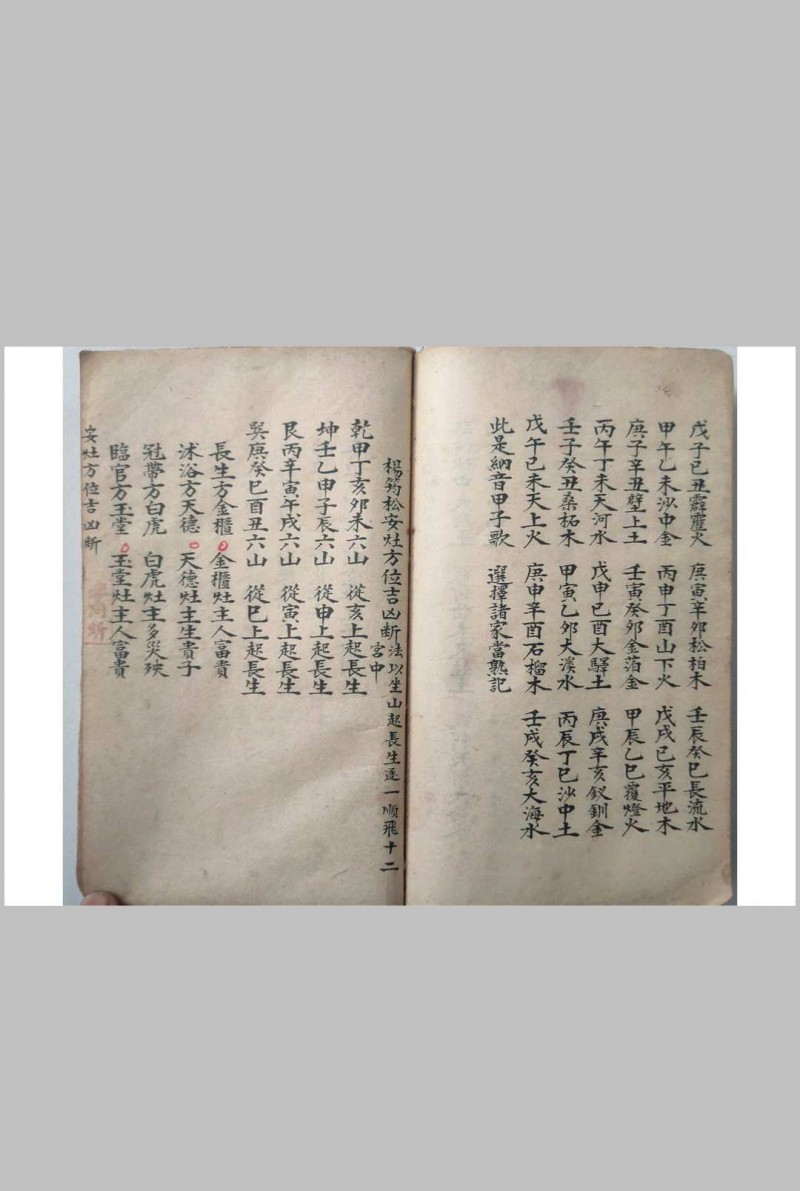 戊子己丑霹靂火　庚寅辛卯松柏木　壬辰癸巳長流水
甲午乙未沙中金　丙申丁酉山下火　戊戌己亥平地木
庚子辛丑壁上土　壬寅癸卯金箔金　甲辰乙巳覆燈火
丙午丁未天河水　戊申己酉大驛土　庚戌辛亥釵釧金
壬子癸丑桑柘木　甲寅乙卯大溪水　丙辰丁巳沙中土
戊午己未天上火　庚申辛酉石榴木　壬戌癸亥大海水
此是納音甲子歌　選擇諸家當熟記
楊筠松安灶方位吉凶斷法以坐山起長生逐一順飛十二
宮中
乾甲丁亥卯未六山　從亥上起長生
坤壬乙申子辰六山　從申上起長生
艮丙辛寅午戌六山　從寅上起長生
巽庚癸巳酉丑六山　從巳上起長生
長生方金櫃　金櫃灶主人富貴
沐浴方天德　天德灶主生貴子
冠帶方白虎　白虎灶主多災殃
臨官方玉堂　玉堂灶主人富貴
安灶方位吉凶斷